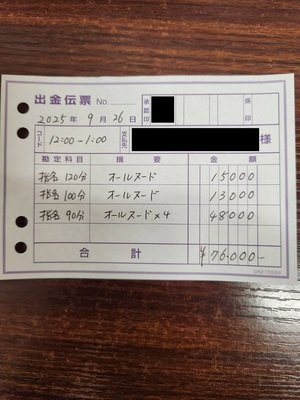 出金伝票 No.
承認印 係印
2025年9月26日
コード 12:00-1:00 支払先 様
勘定科目 摘要 金額
指名120分 オールヌード 15000
指名100分 オールヌード 13000
指名90分 オールヌード×4 48000
合計 ¥76,000-